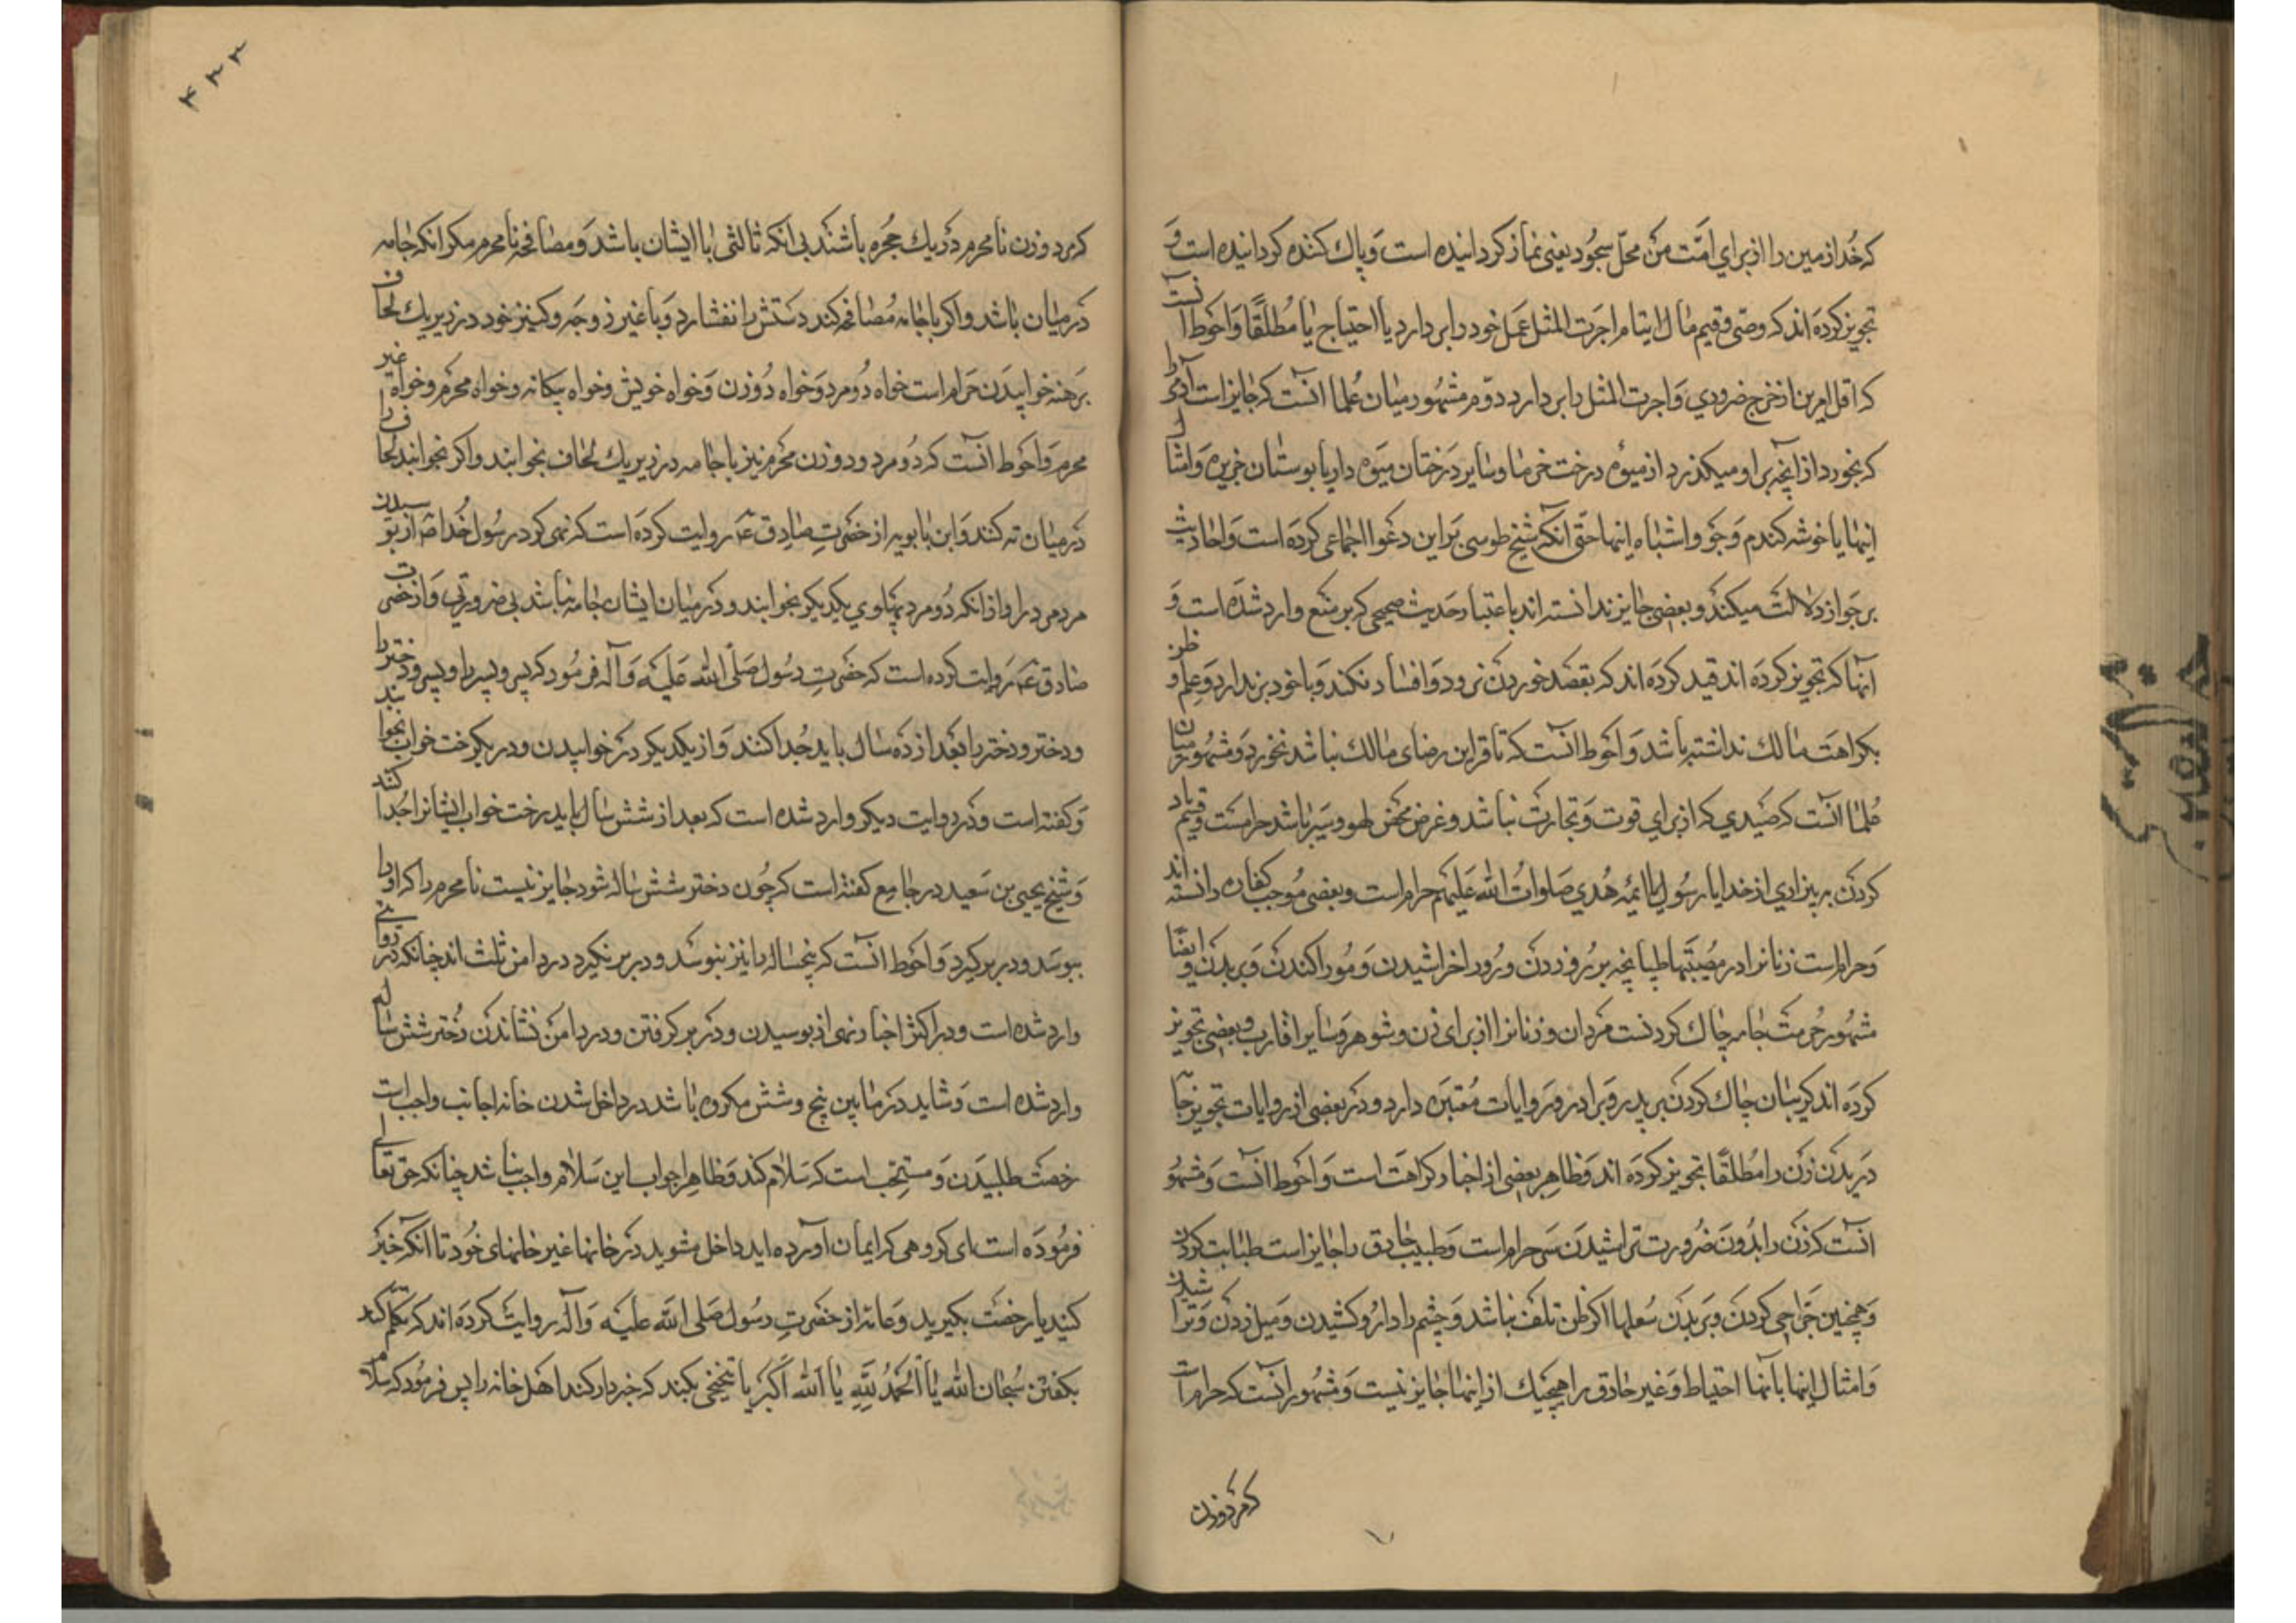 که خدا زمین را از برای امّت من محلّ سجود یعنی نماز کردانیده است و پاك کننده کردانیده است و
تجویز کرده اند که وصی و قیم مال ایتام اجرت المثل عمل خود را بر دارد با احتیاج یا مطلقًا و احوط آنست
که اقل امرین از خرج ضروری و اجرت المثل را بر دارد دوّم مشهور میان علما آنست که جایز است آدمی را
که بخورد از آنچه بر او میکذرد از میوه درخت خرما و سایر درختان میوه دار یا بوستان خربزه و امثال
اینها یا خوشه کندم و جو و اشباه اینها حتی آنکه شیخ طوسی بر این دعوا اجماعی کرده است و احادیث
بر جواز دلالت میکند و بعضی جایز ندانسته اند باعتبار حدیث صحیحی که بر منع وارد شده است و
آنها که تجویز کرده اند قید کرده اند که بقصد خوردن نرود و افساد نکند و با خود بر ندارد و علم و ظن
بکراهت مالك نداشته باشد و احوط آنست که تا قراین رضای مالك نباشد نخورد و مشهور میان
علما آنست که صیدی که از برای قوت و تجارت نباشد و غرض محض لهو و سیر باشد حرامست و قسم یاد
کردن به بیزاری از خدا یا رسول یا ائمه هدی صلوات الله علیهم حرام است و بعضی موجب کفاره دانسته اند
و حرام است زنانرا در مصیبتها طپانچه بر رو زدن و رو را خراشیدن و مو را کندن و بریدن و ایضًا
مشهور حرمت جامه چاك کردنست مردان و زنانرا از برای زن و شوهر و سایر اقارب و بعضی تجویز
کرده اند کریبان چاك کردن بر پدر و برادر و روایات معتبره دارد و در بعضی از روایات تجویز جامه
دریدن زن را مطلقًا تجویز کرده اند و ظاهر بعضی از اخبار کراهت است و احوط آنست و مشهور
آنست که زن را بدون ضرورت تراشیدن سر حرام است و طبیب حاذق را جایز است طبابت کردن
و همچنین جراحی کردن و بریدن سعلها اکر ظن تلف نباشد و چشم را دارو کشیدن و میل زدن و تراشیدن
و امثال اینها با آنها احتیاط و غیر حاذق را هیچیك از اینها جایز نیست و مشهور آنست که حرام است
که مرد و زن
۴۳۳
که مرد و زن نامحرم در یك حجره باشند بی آنکه ثالثی با ایشان باشد و مصافحه نامحرم مکر آنکه جامه
در میان باشد و اکر با جامه مصافحه کند دستش را نفشارد و با غیر زوجه و کنیز خود در زیر یك لحاف
برهنه خوابیدن حرام است خواه دو مرد و خواه دو زن و خواه خویش و خواه بیکانه و خواه محرم و خواه غیر
محرم و احوط آنست که دو مرد و دو زن محرم نیز با جامه در زیر یك لحاف نخوابند و اکر بخوابند لحاف را
در میان ته کنند و ابن بابویه از حضرت صادق ع روایت کرده است که نهی کرد رسول خدا ص از بوسیدن
مرد مرد را و از آنکه دو مرد بپهلوی یکدیکر بخوابند و در میان ایشان جامه نباشد بی ضرورتی و از حضرت
صادق ع روایت کرده است که حضرت رسول صلی الله علیه و آله فرمود که پسر و پسر را و پسر و دختر را
و دختر و دختر را بعد از ده سال باید جدا کنند و از یکدیکر در خوابیدن و در یکرخت خواب نخوابند
و کفته است و در روایت دیکر وارد شده است که بعد از شش سال باید رخت خواب ایشانرا جدا کنند
و شیخ یحیی بن سعید در جامع کفته است که چون دختر شش ساله شود جایز نیست نامحرم را که او را
ببوسد و در بر کیرد و احوط آنست که پنجساله را نیز نبوسد و در بر نکیرد و در دامن ننشاند چنانکه در روایتی
وارد شده است و در اکثر اخبار نهی از بوسیدن و در بر کرفتن و در دامن نشاندن دختر شش ساله
وارد شده است و شاید در مابین پنج و شش مکروه باشد در داخل شدن خانه اجانب واجب است
رخصت طلبیدن و مستحب است که سلام کند و ظاهرا جواب این سلام واجب نباشد چنانکه حق تعالی
فرموده است ای کروهی که ایمان آورده اید داخل مشوید در خانها غیر خانهای خود تا آنکه خبر
کنید یا رخصت بکیرید و عامه از حضرت رسول صلی الله علیه و آله روایت کرده اند که تکلم کند
بکفتن سبحان الله یا الحمد لله یا الله اکبر یا تنحنحی بکند که خبردار کند اهل خانه را پس فرمود که سلام